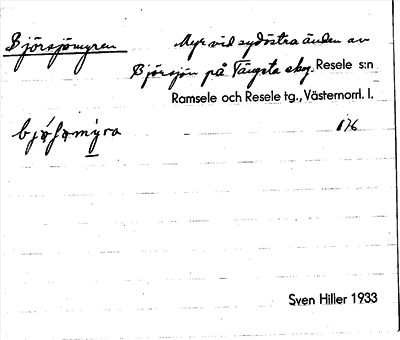 Björsjömyren
Myr vid sydöstra änden av
Björsjön på Tängsta skog. Resele s:n
Ramsele och Resele tg., Västernorrl. l.
176
Sven Hiller 1933